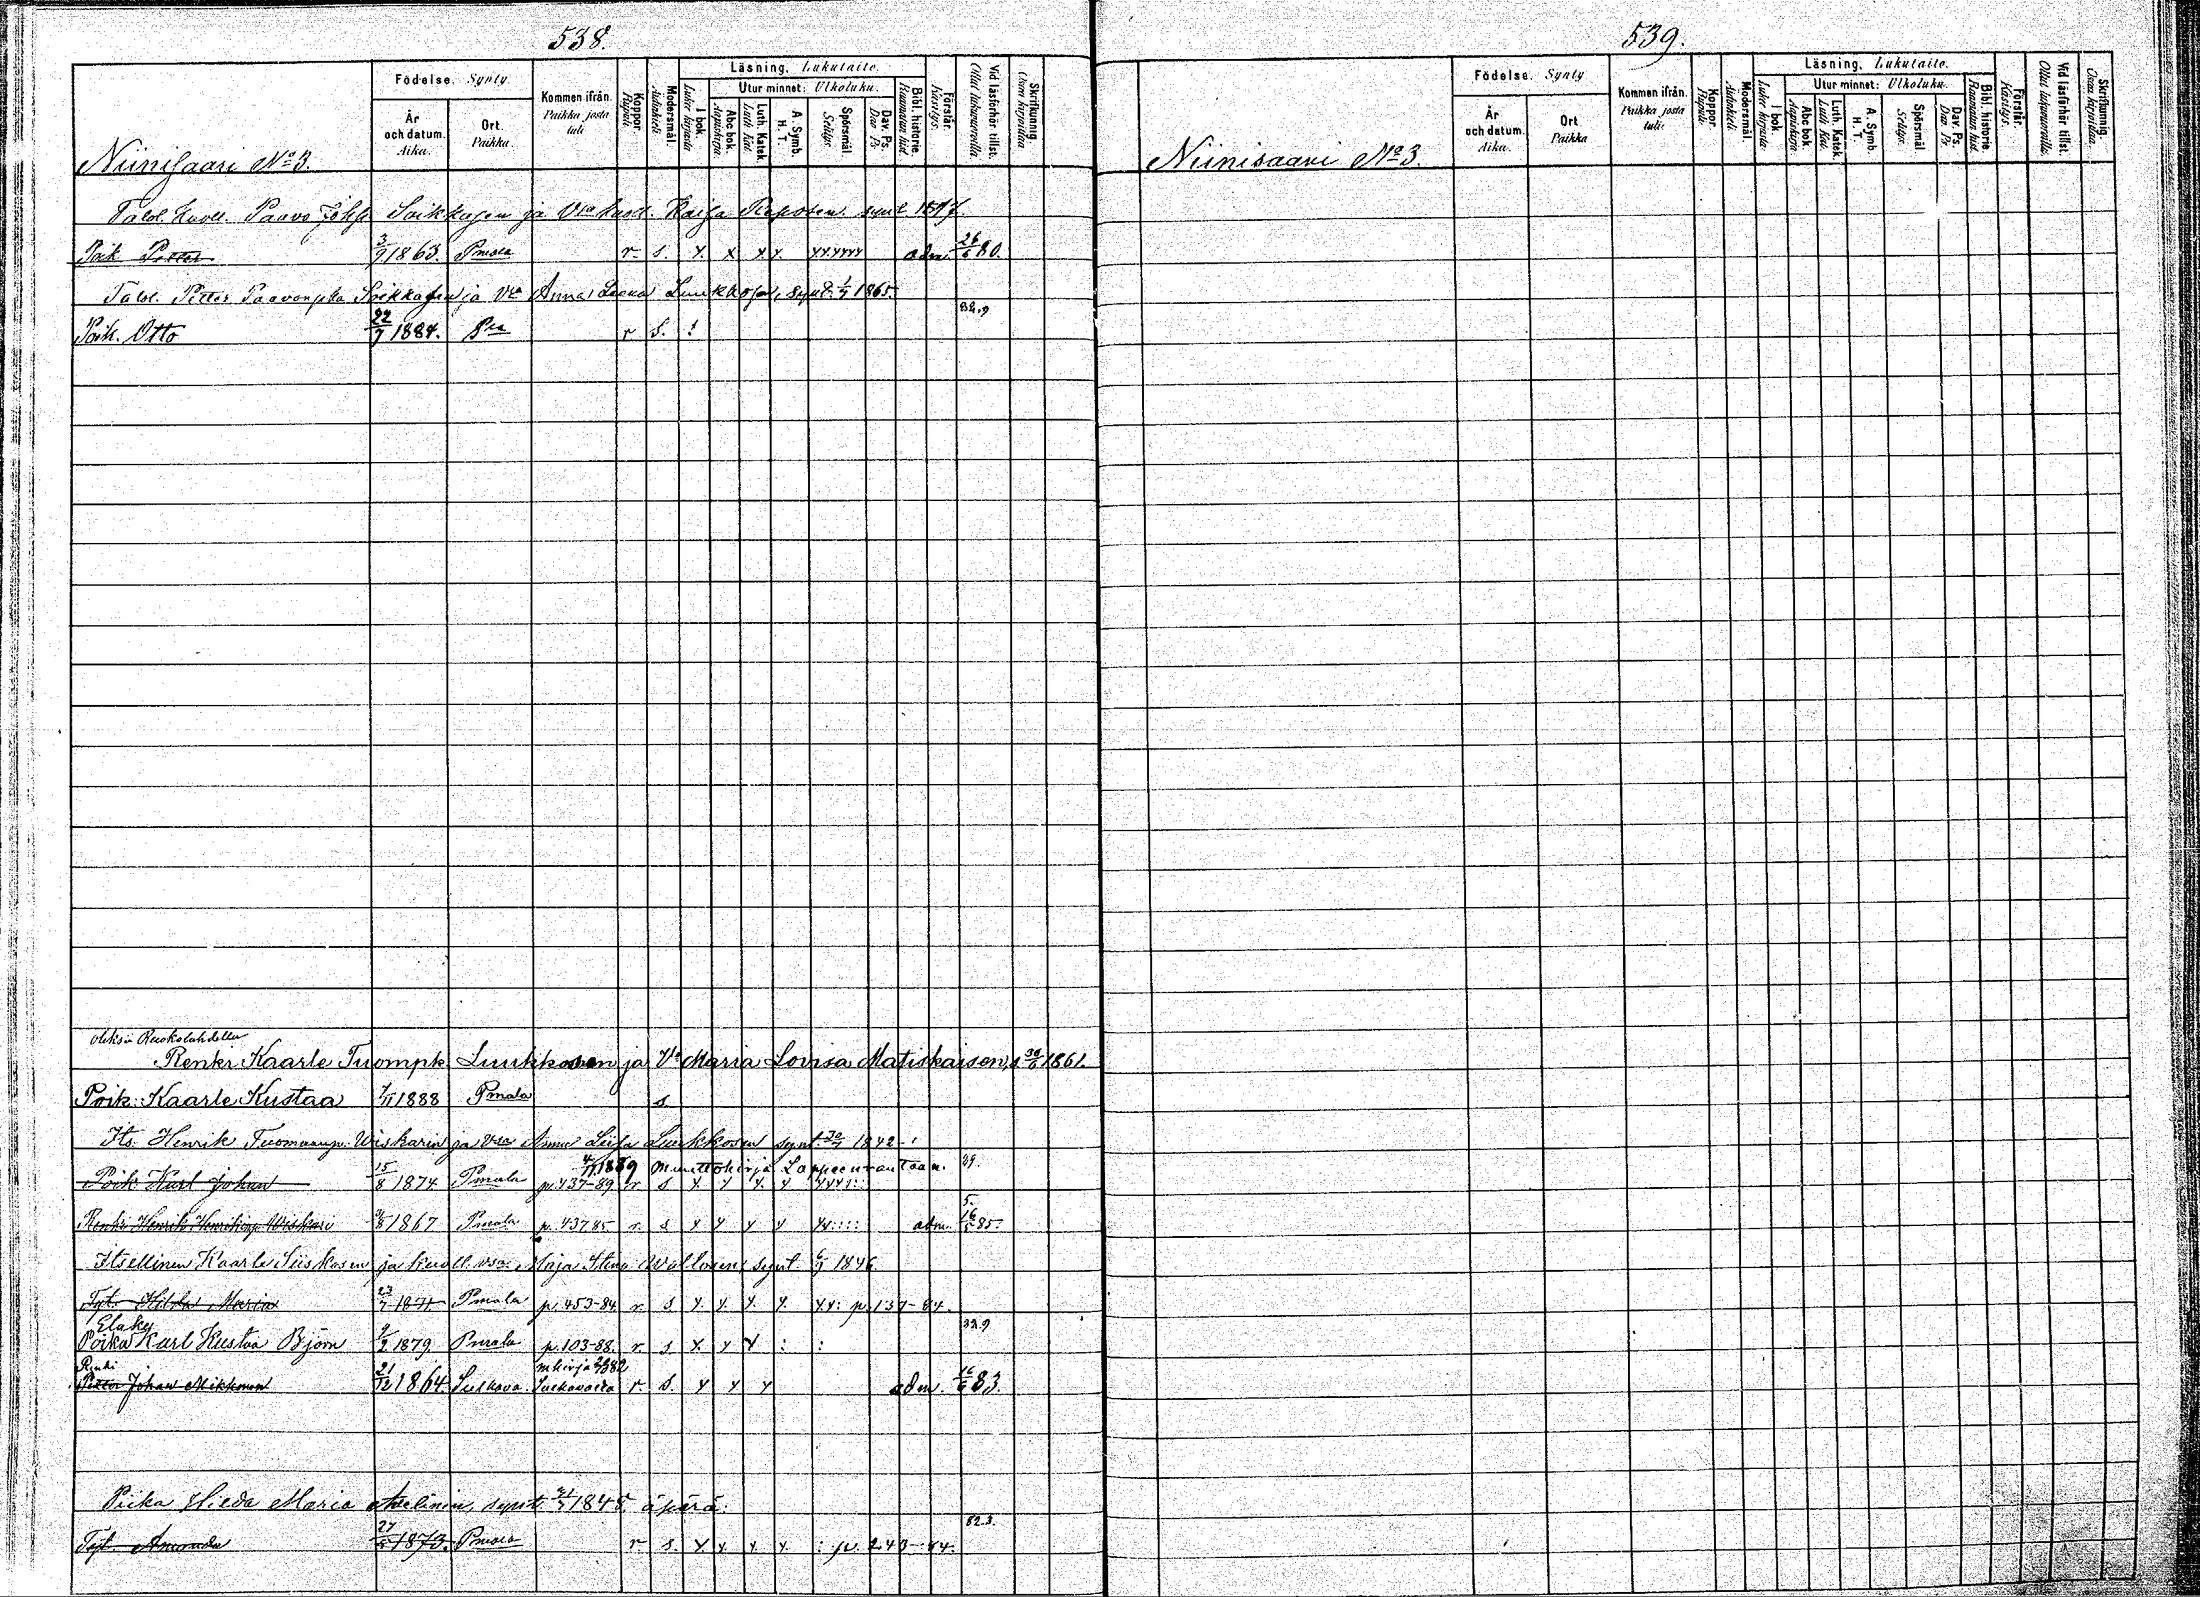 538.
Födelse. Synty.
År och datum. Aika.
Ort. Paikka.
Kommen ifrån. Paikka josta tuli
Koppor. Rupuli
Modersmål. Äidinkieli
Läsning. Lukutaito.
I bok. Lukee kirjasta
Utur minnet: Ulkoluku.
Abc bok Aapiskirja
Luth. Katek. Luth. Kat.
A. Symb. H. T.
Spörsmål Selitys.
Dav. Ps. Dav. Ps.
Bibl. historie. Raamatun hist.
Förstår. Käsitys.
Vid läsförhör tillst. Ollut lukunurvolla
Skrifkunnig. Osaa kirjoittaa
Niinisaari No 3.
Talol. Kuoll. Paavo Soikkasen ja Vsa kuoll. Kaisa Reposen synt 1817.
Poik Petter 3/9 1863. Pmala r s. x x x x. xxxxxx adm. 26/6 80.
Talol. Petter Paavonpka Soikkasen ja Vsa Anna Leena Luukkosa, synt. 1/7 1865.
32.9
Poik. Otto 22/7 1884. Pla r s. :
Renki Kaarle Tuompk. Luukkosen ja Vsa Maria Lovisa Matiskaisen, s 30/6 1861.
Poik: Kaarle Kustaa 7/11 1888 Pmala s.
Its. Henrik Tuomaanp. Wiskarin ja vsa Anna Luisa Luukkosen synt. 30/7 1842.
4/11 1889 Muuttokirja Lappeenrantaan. 89.
Poik Karl Johan 15/8 1874 Pmala p. 437-89 r s x. x x. x xxxx:
5.
Renki Henrik Henrikinp. Wiskari 4/8 1867 Pmala p. 437 85 r. s x x x x xx:::: adm. 16/6 85.
Itsellinen Kaarle Siiskosen ja kuoll vsa. Maja Stina Wallosen, synt. 6/9 1846
Tyt. Hilda Maria 23/7 1871 Pmala p. 453-84. r. s x. x. x. x. xx: p. 137-84.
Elaky 32.9
Poika Karl Kustaa Björn 9/2 1879. Pmala p. 103-88. r. s x. x x : :
Renki mkirja 82
Johan Mikkonen 21/12 1864. Sulkava Sulkavalta r. s. x x x adm. 16/6 83.
Piika Hilda Maria Aselinin, synt. 21/7 1848 äpärä.
82.3.
Tyt. Amanda 27/5 1873. Pmala r s. x. x x x. : p. 243-84.
539.
Födelse. Synty.
År och datum. Aika.
Ort Paikka
Kommen ifrån. Paikka josta tuli:
Koppor. Rupuli
Modersmål. Äidinkieli
Läsning. Lukutaito.
I bok. Lukee kirjasta
Utur minnet: Ulkoluku.
Abc bok Aapiskirja
Luth. Katek. Luth. Kat.
A. Symb. H. T.
Spörsmål Selitys.
Dav. Ps. Dav. Ps.
Bibl. historie. Raamatun hist.
Förstår. Käsitys.
Vid läsförhör tillst.
Skrifkunnig. Osaa kirjoittaa.
Niinisaari No 3.